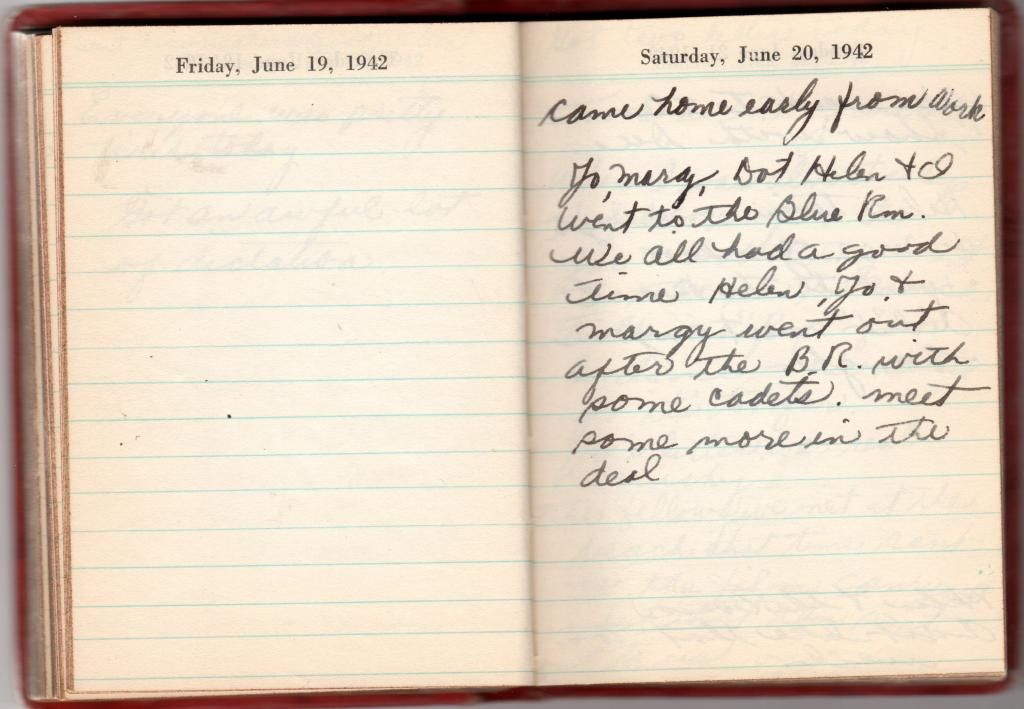 Friday, June 19, 1942
Saturday, June 20, 1942
Came home early from Work
Jo, Marg, Dot Helen & I
went to the Blue Rm.
We all had a good
time Helen, Jo. &
margy went out
after the B.R. with
some cadets. meet
some more in the
deal